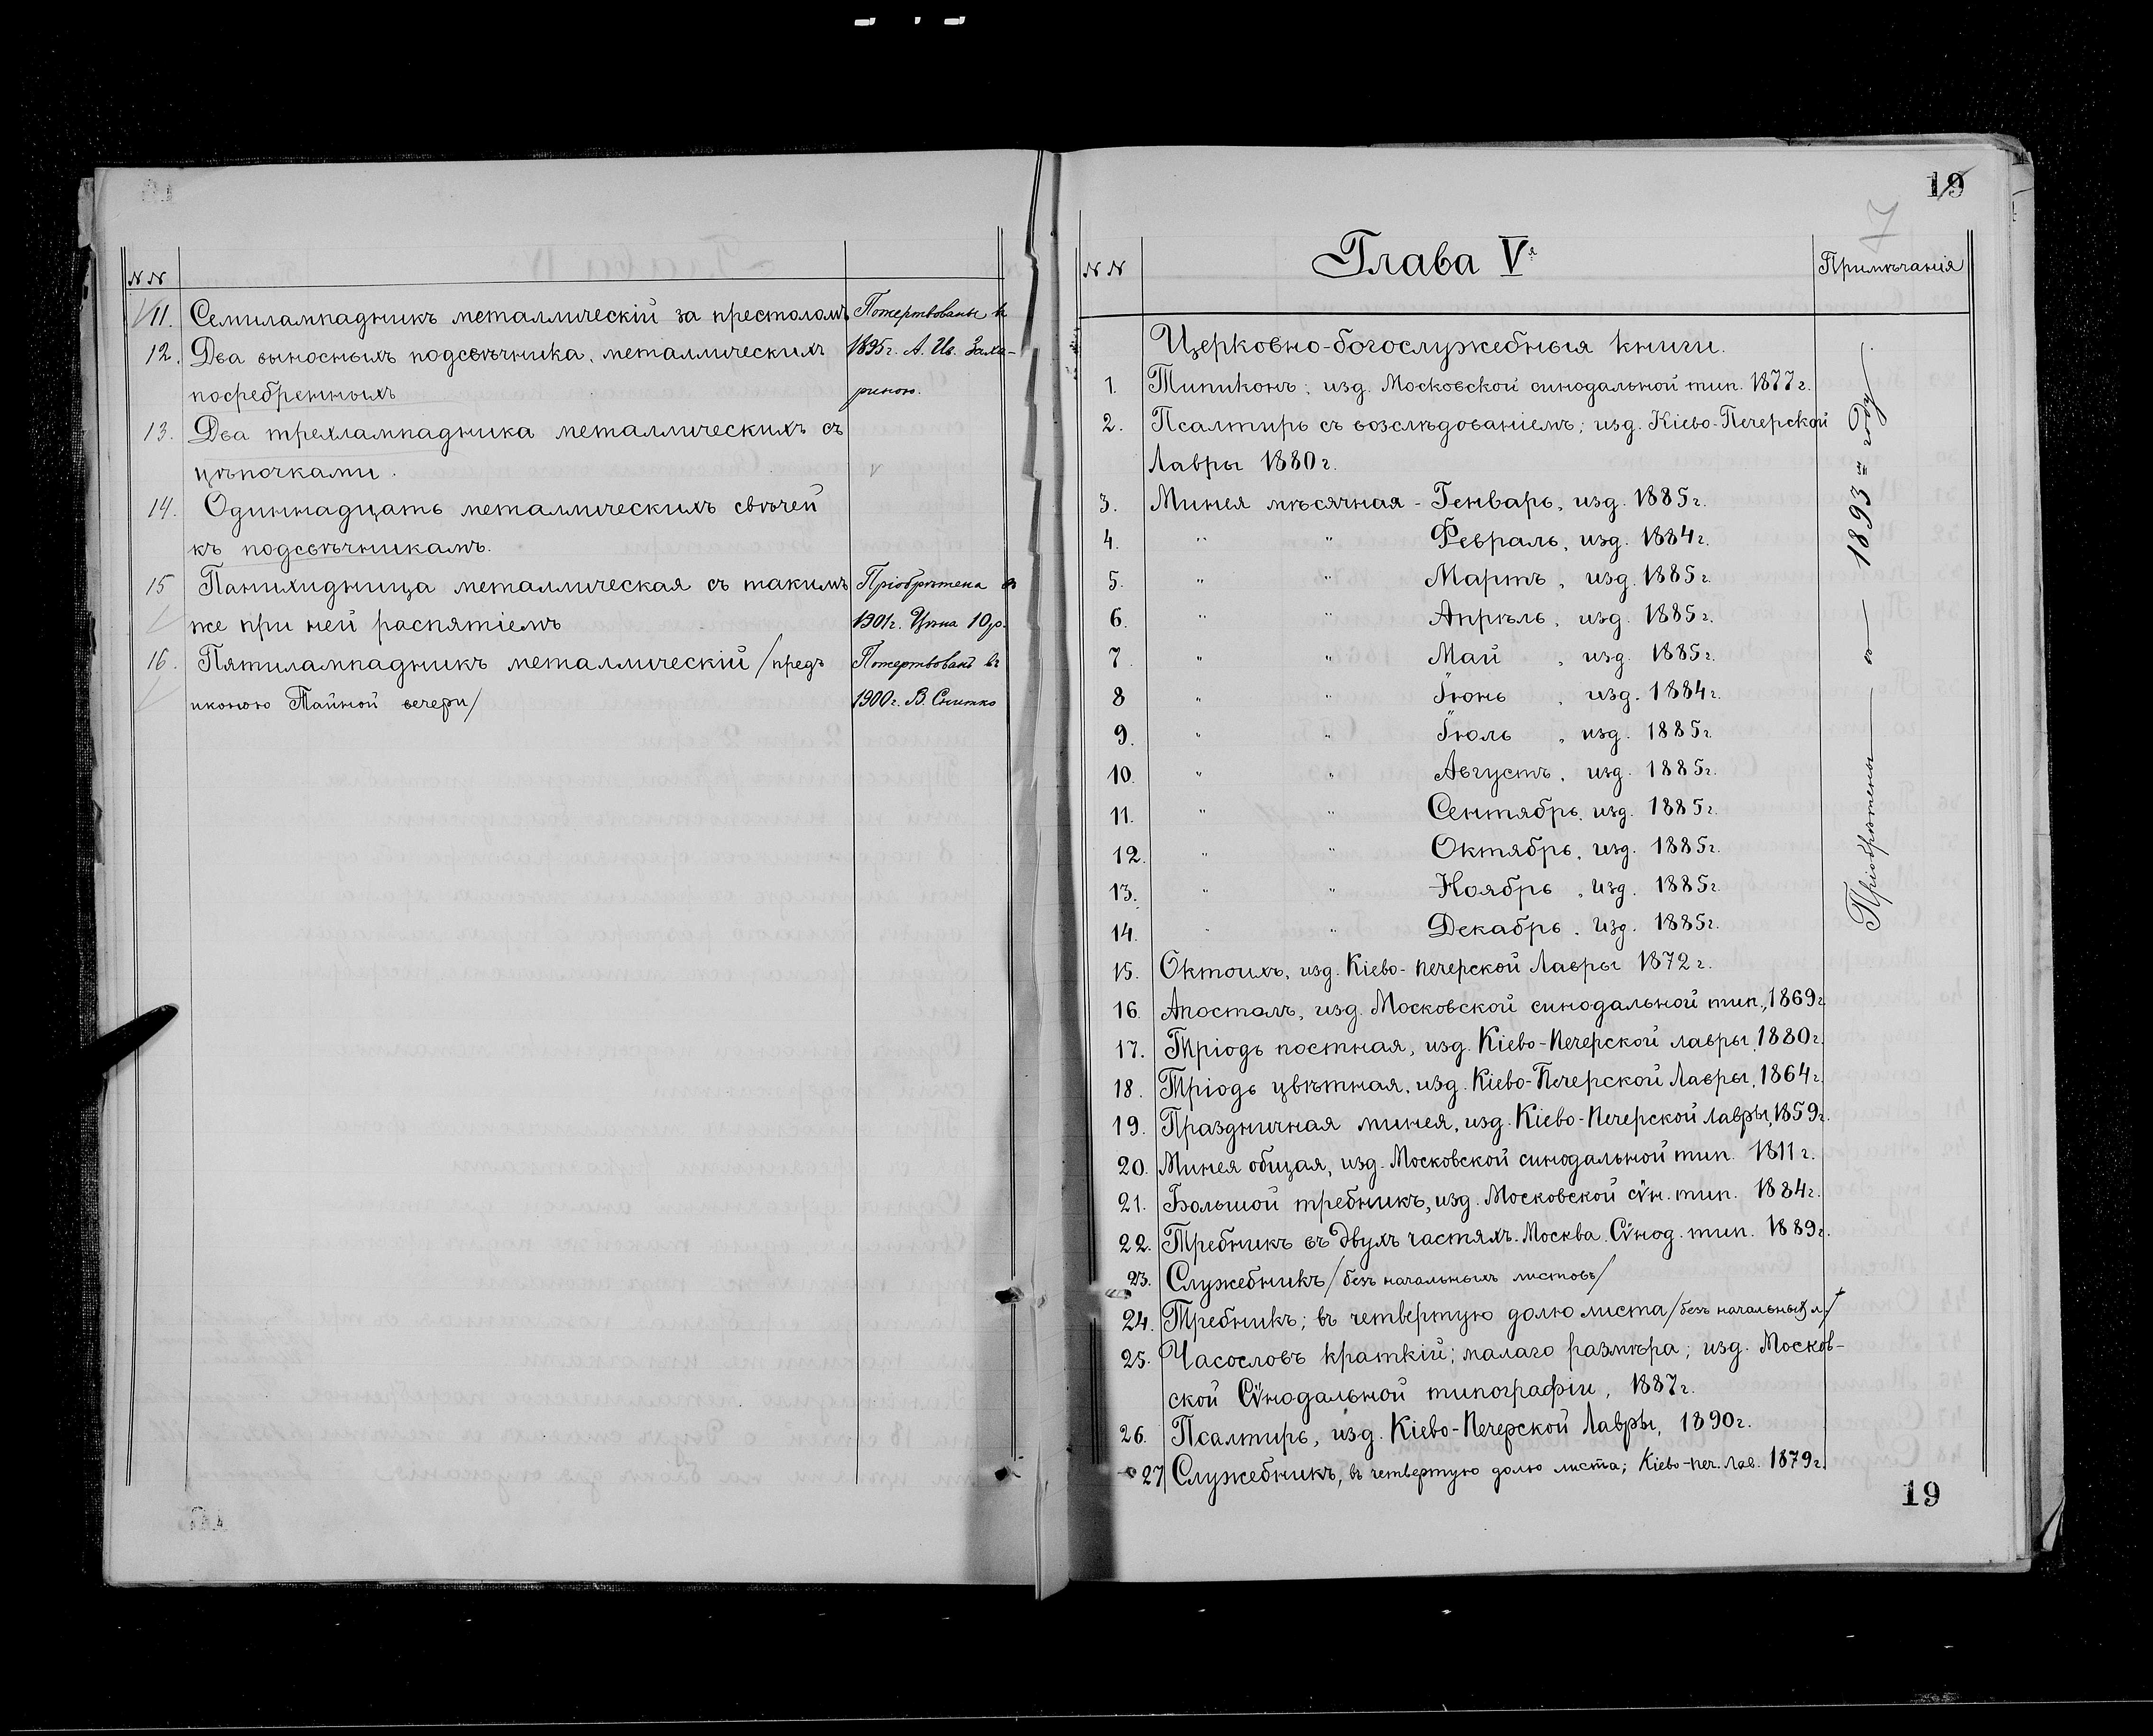 №№
11. Семилампадникъ металлическій за престоломъ Пожертвованы въ
12. Два выносныхъ подсвѣчника, металлическихъ 1895г. А. Ив. Заха-
посребренныхъ риною.
13. Два трехлампадника металлическихъ съ
цѣпочками.
14. Одиннадцать металлическихъ свѣчей
къ подсвѣчникамъ.
15 Панихидница металлическая съ такимъ Пріобрѣтена въ
же при ней распятіемъ 1901г. Цѣна 10р.
16. Пятилампадникъ металлическій /предъ Пожертвованъ въ
иконою Тайной вечери/ 1900г. В.
19
7
№№ Глава Vя Примѣчанія
Церковно-богослужебныя книги.
1. Типиконъ; изд. Московской синодальной тип. 1877г.
2. Псалтирь съ возслѣдованіемъ; изд. Кіево-Печерской
Лавры 1880г.
3. Минея мѣсячная - Генварь, изд. 1885г.
4. " " Февраль, изд. 1884г.
5. " " Мартъ, изд. 1885г.
6. " " Апрѣль, изд. 1885г.
7. " " Май, изд. 1885г.
8 " " Іюнь, изд. 1884г.
9. " " Іюль, изд. 1885г.
10. " " Августъ, изд. 1885г.
11. " " Сентябрь, изд. 1885г.
12. " " Октябрь, изд. 1885г.
13. " " Ноябрь, изд. 1885г.
14. " " Декабрь. Изд. 1885г.
Пріобрѣтены — въ — 1893м году —.
15. Октоихъ, изд. Кіево-Печерской Лавры 1872г.
16. Апостолъ, изд. Московской синодальной тип., 1869г.
17. Тріодь постная, изд. Кіево-Печерской лавры, 1880г.
18. Тріодь цвѣтная, изд. Кіево-Печерской Лавры, 1864г.
19. Праздничная минея, изд. Кіево-Печерской Лавры, 1859г.
20. Минея общая, изд. Московской синодальной тип. 1811г.
21. Большой требникъ, изд. Московской сѵн. тип. 1884г.
22. Требникъ въ двухъ частяхъ. Москва. Сѵнод. тип. 1889г.
23. Служебникъ /безъ начальныхъ листовъ/
24. Требникъ; въ четвертую долю листа /безъ начальныхъ л./
25. Часословъ краткій; малаго размѣра; изд. Москов-
ской Сѵнодальной типографіи, 1887г.
26. Псалтирь, изд. Кіево-Печерской Лавры, 1890г.
27 Служебникъ, въ четвертую долю листа; Кіево-печ. Лав. 1879г.
19